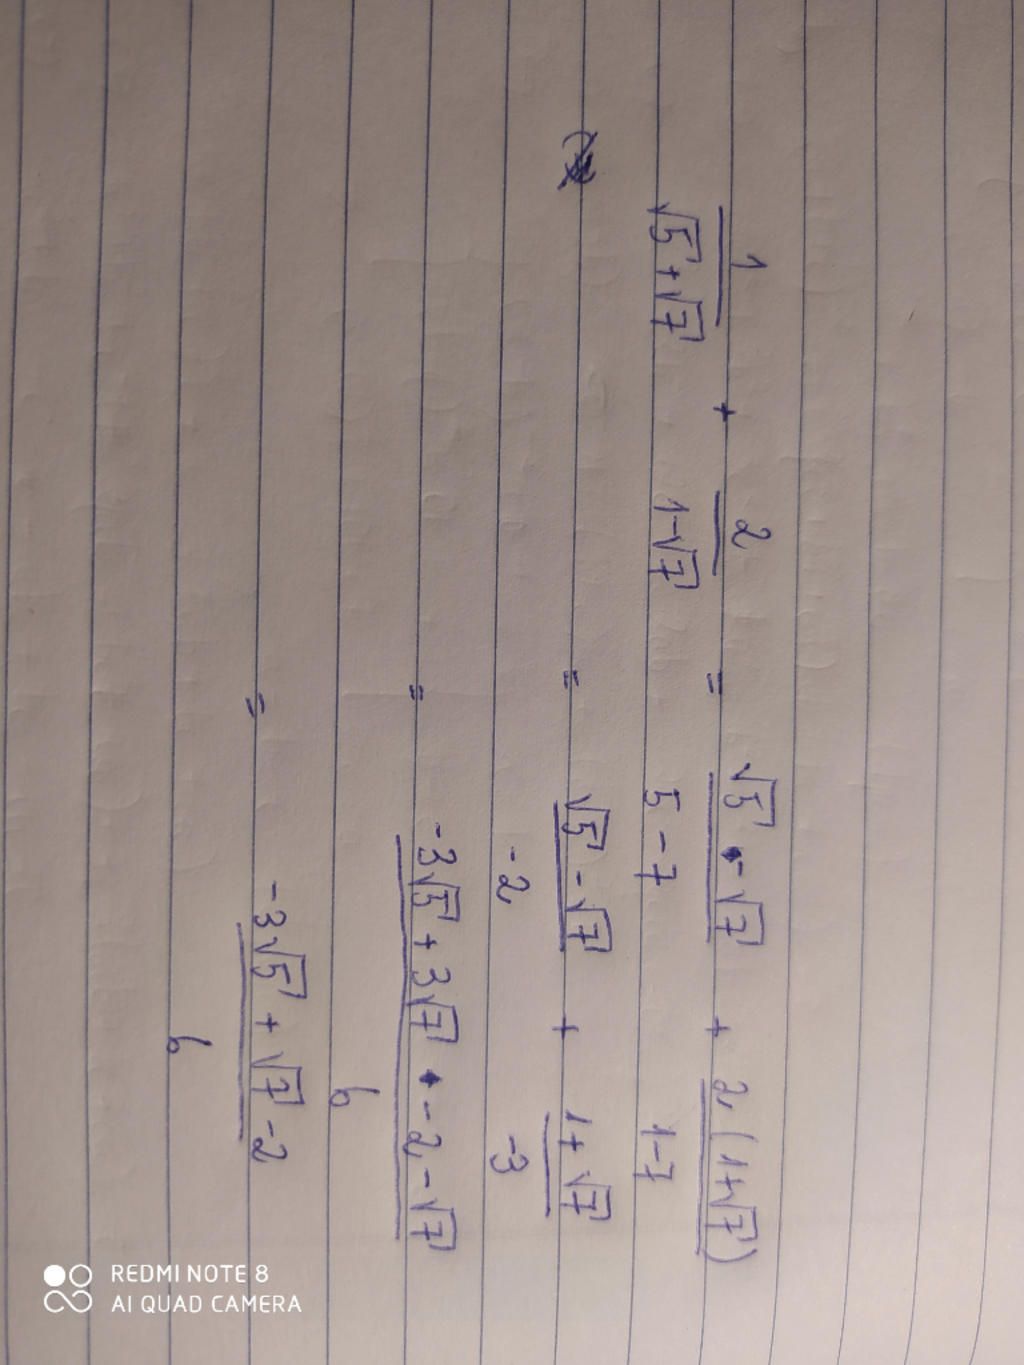 1/(√5+√7) + 2/(1-√7) = (√5-√7)/(5-7) + 2(1+√7)/(1-7)
= (√5-√7)/-2 + (1+√7)/-3
= (-3√5+3√7-2-√7)/6
= (-3√5+√7-2)/6
REDMI NOTE 8
AI QUAD CAMERA